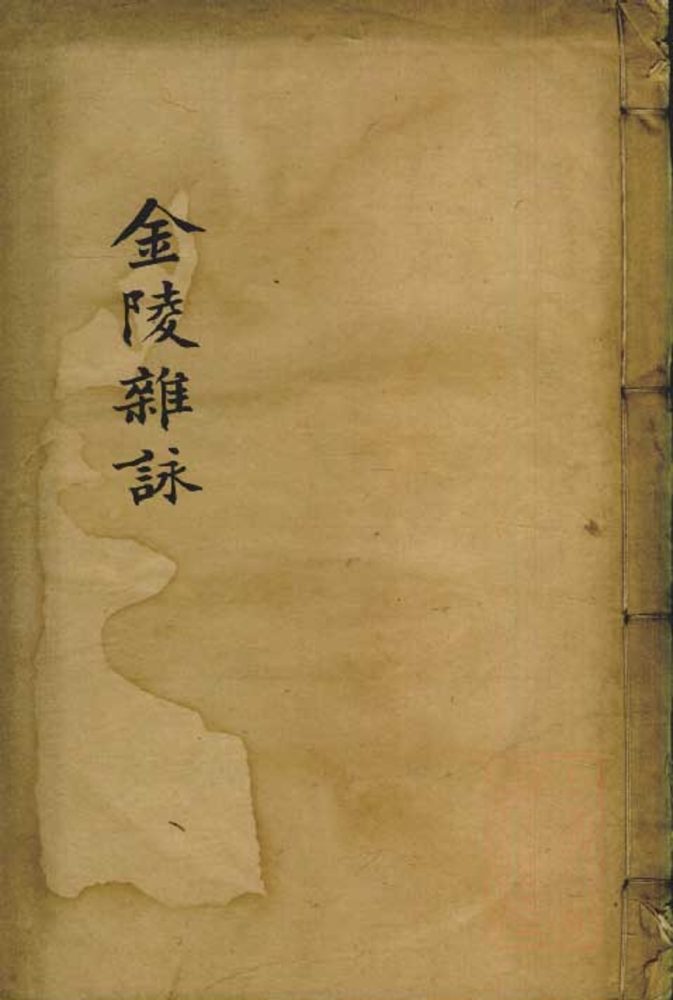 金陵雜詠